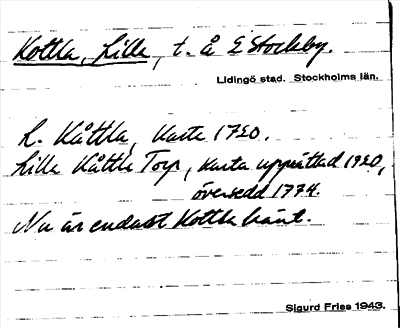 Kottla, Lilla, t. å Ekstockby.
Lidingö stad. Stockholms län.
L. Kåttla, Karta 1720.
Lilla Kåttla Torp, karta upprättad 1720,
översedd 1774.
Nu är endast Kottla känt.
Sigurd Fries 1943.